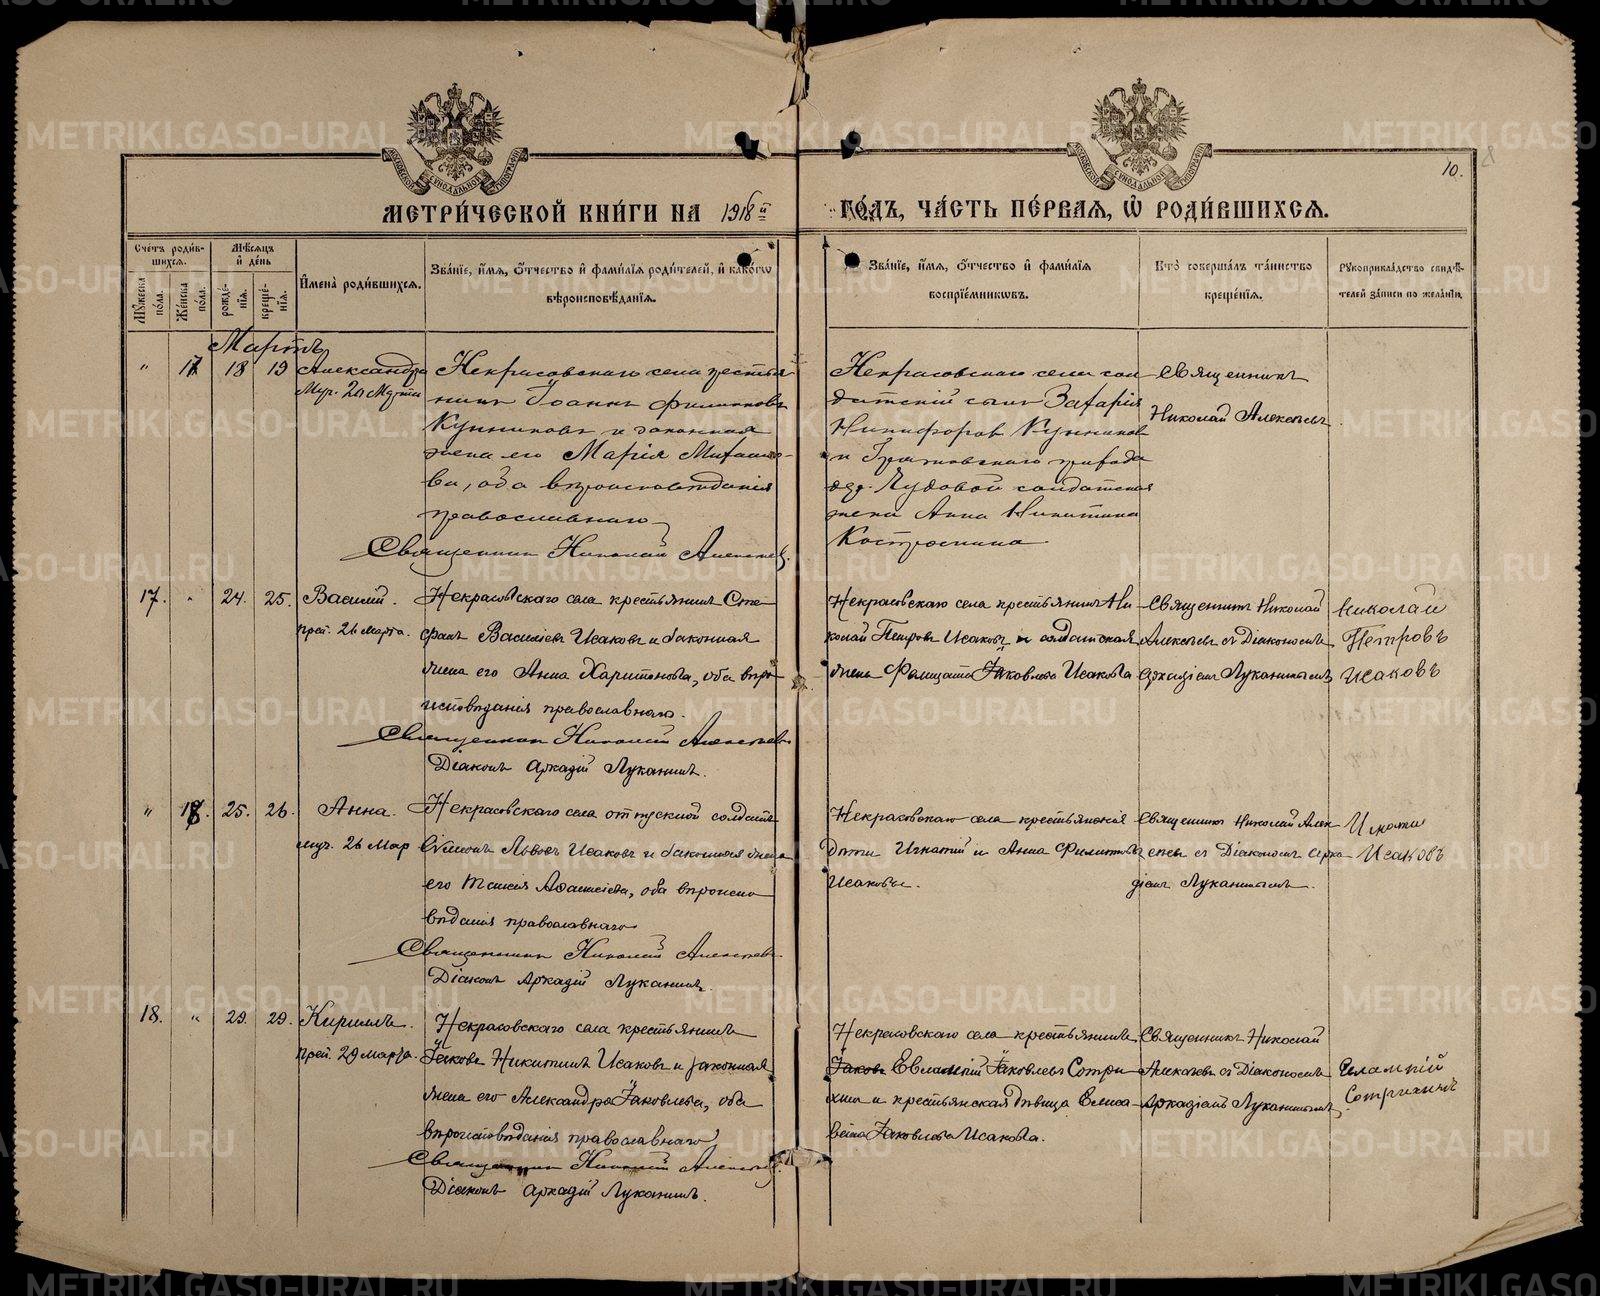 МЕТРИ́ЧЕСКОЙ КНИ́ГИ НА 1918й ГО́ДЪ, ЧА́СТЬ ПЕ́РВАѦ, Ѡ҆ РОДИ́ВШИХСѦ.
10.
Сче́тъ роди́в-
шихсѧ.
Мꙋ́жеска по́ла.
Же́нска по́ла.
Мѣ́сѧцъ и҆ де́нь
рожде́-
нїѧ.
креще́-
нїѧ.
И҆мена̀ роди́вшихсѧ.
Зва́нїе, и҆́мѧ, ѻ҆́тчество и҆ фами́лїѧ роди́телей, и҆ како́гѡ
вѣроисповѣ́данїѧ.
Зва́нїе, и҆́мѧ, ѻ҆́тчество и҆ фами́лїѧ
воспрїе́мникѡвъ.
Кто̀ соверша́лъ та́инство
креще́нїѧ.
Рꙋкоприкла́дство свидѣ́-
телей за́писи по жела́нїю.
Мартъ
" 17 18 19 Александра
Мур. 20 Марта
Некрасовскаго села крестья
нинъ Іоаннъ Филиппов
Кунников и законная
жена его Марія Михаило-
ва, оба вѣроисповѣданія
православнаго
Священник Николай Алексѣев.
Некрасовскаго села сол
датскій сынъ Захарія
Никифоров Кунников
и прихода
дер. солдатская
жена Анна Никитина
Священникъ
Николай Алексѣевъ
17. " 24. 25. Василий.
преп. 26 марта.
Некрасовскаго села крестьянинъ Сте
фанъ Васильевъ Исаковъ и законная
жена его Анна Харитонова, оба вѣро
исповѣданія православнаго.
Священник Николай Алексѣев
Діаконъ Аркадій Луканинъ.
Некрасовскаго села крестьянинъ Ни
колай Петровъ Исаковъ и солдатская
жена Іаковлева Исакова
Священникъ Николай
Алексѣевъ съ Діакономъ
Аркадіемъ Луканинымъ
Николай
Петровъ
Исаковъ
" 18. 25. 26. Анна.
муч. 26 Мар
Некрасовскаго села отпускной солдатъ
Сѵмеонъ Львовъ Исаковъ и законная жена
его Таисія Аѳанасіева, оба вѣроиспо
вѣданія православнаго
Священник Николай Алексѣев
Діаконъ Аркадій Луканинъ.
Некрасовскаго села крестьянскія
дѣти Игнатій и Анна Филиппова
Исаковы.
Священникъ Николай Алек
сѣевъ съ Діакономъ Арка
діемъ Луканинымъ.
Исаковъ
18. " 29. 29. Кириллъ.
преп. 29 марта.
Некрасовскаго села крестьянинъ
Іаковъ Никитинъ Исаковъ и законная
жена его Александра Іаковлева, оба
вѣроисповѣданія православнаго
Священник Николай Алексѣев.
Діаконъ Аркадій Луканинъ.
Некрасовскаго села крестьянинъ
Іаковъ Евлампій Іаковлевъ Сотри
хинъ и крестьянская дѣвица Елиса-
вета Іаковлева Исакова.
Священникъ Николай
Алексѣевъ съ Діакономъ
Аркадіемъ Луканинымъ
Сотрихинъ
METRIKI.GASO-URAL.RU